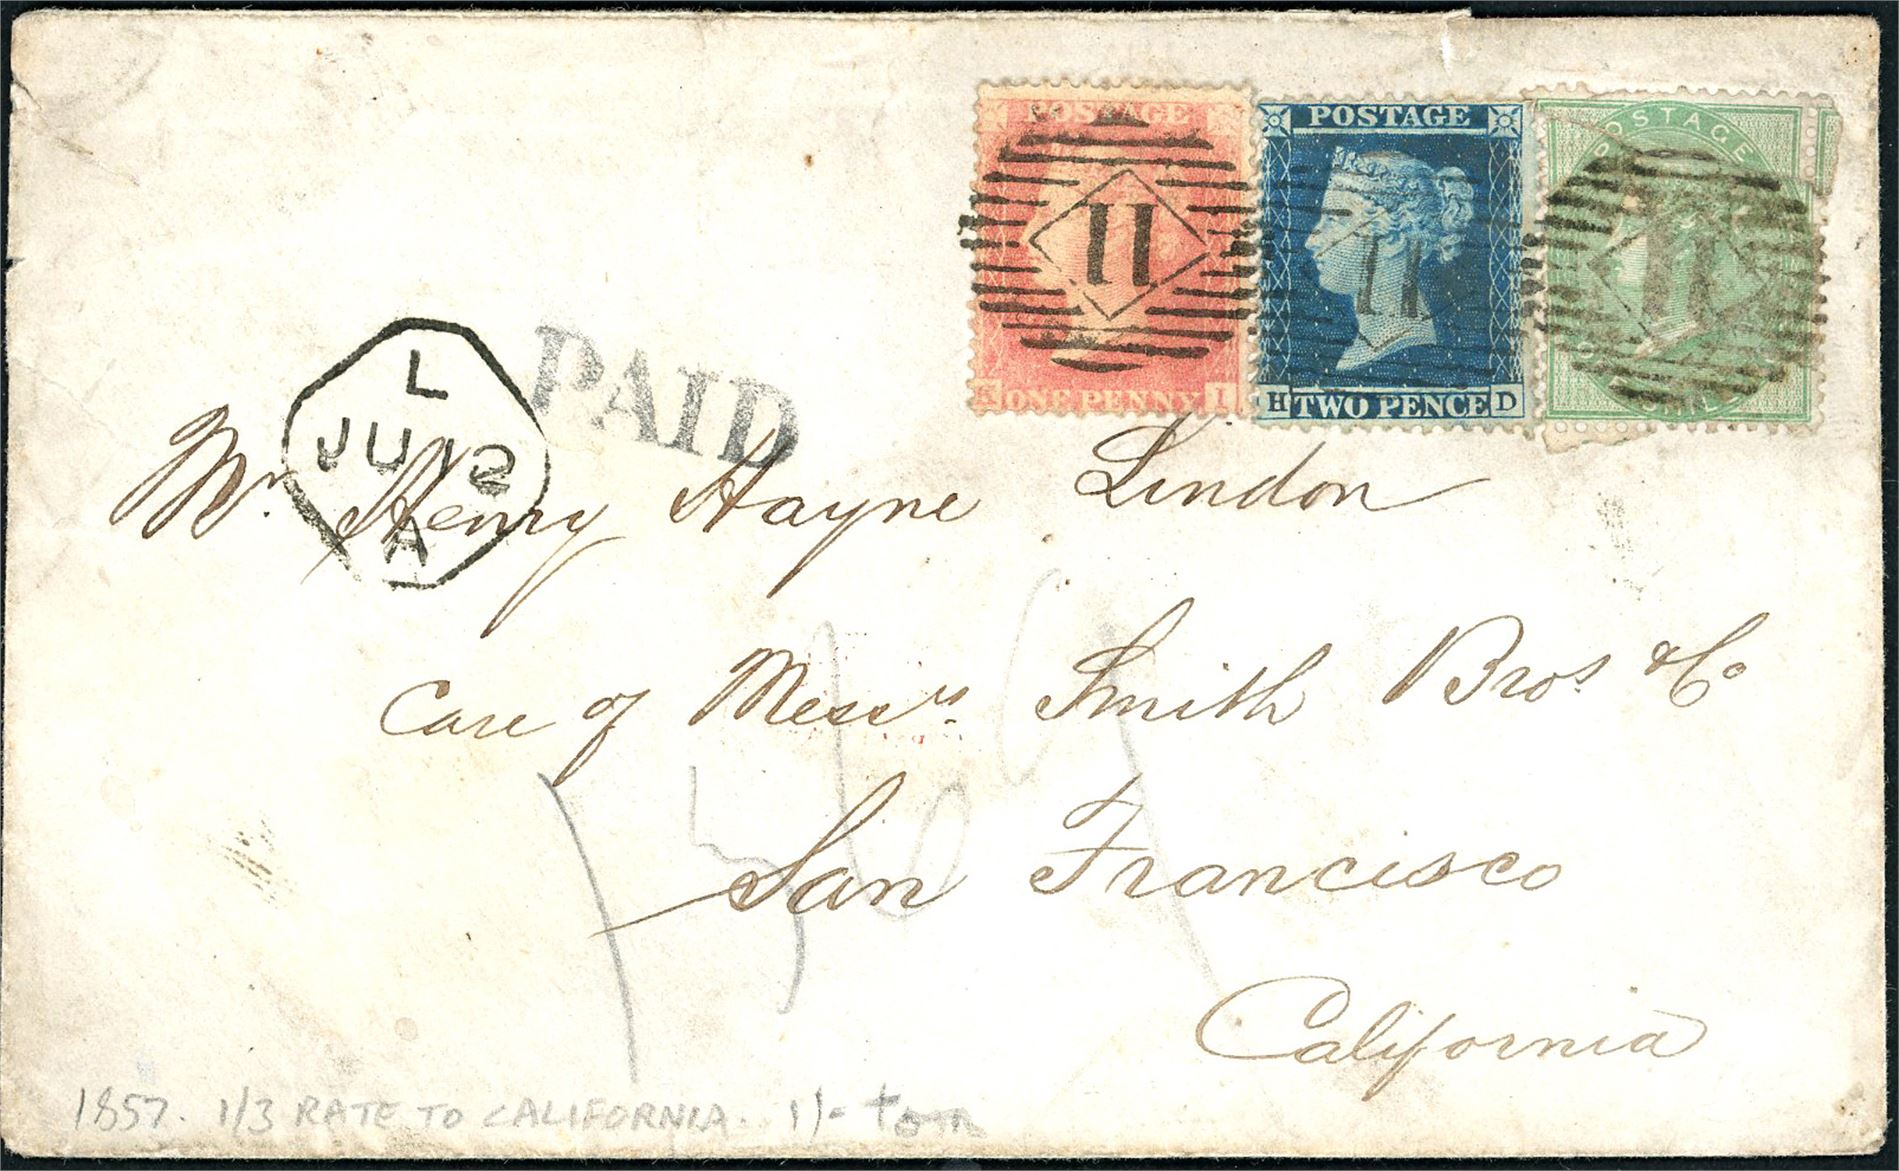 POSTAGE
ONE PENNY I
11
POSTAGE
H TWO PENCE D
11
POSTAGE
11
PAID
L
JU 12
A
Mr. Henry Hayne Lindon
Care of Messrs. Smith Bros. & Co
San Francisco
California
1857. 1/3 RATE TO CALIFORNIA. 1/- torn